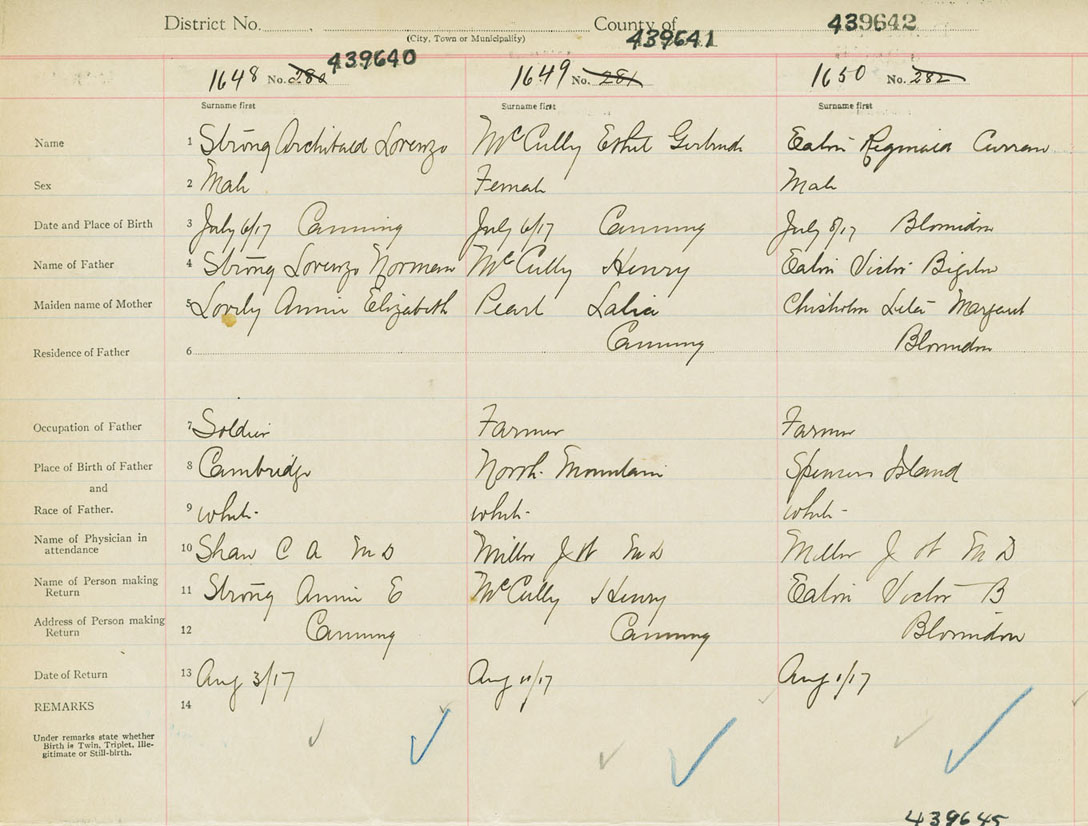 District No. County of 439642
(City, Town or Municipality)
439641
439640
1648 No. 280 1649 No. 281 1650 No. 282
Surname first Surname first Surname first
Name 1 Strong Archibald Lorenzo McCully Ethel Gertrude Eaton Reginald Curran
Sex 2 Male Female Male
Date and Place of Birth 3 July 6/17 Canning July 6/17 Canning July 8/17 Blomidon
Name of Father 4 Strong Lorenzo Norman McCully Henry Eaton Victor Bigelow
Maiden name of Mother 5 Lovely Annie Elizabeth Pearl Chisholm Leta Margaret
Residence of Father 6 Canning Blomidon
Occupation of Father 7 Soldier Farmer Farmer
Place of Birth of Father 8 Cambridge North Mountain Spencers Island
and
Race of Father. 9 white white white
Name of Physician in
attendance 10 Shaw C A MD Miller J W MD Miller J W MD
Name of Person making
Return 11 Strong Annie E McCully Henry Eaton Victor B
Address of Person making
Return 12 Canning Canning Blomidon
Date of Return 13 Aug 3/17 Aug /17 Aug 1/17
REMARKS 14
Under remarks state whether
Birth is Twin, Triplet, Ille-
gitimate or Still-birth.
439645